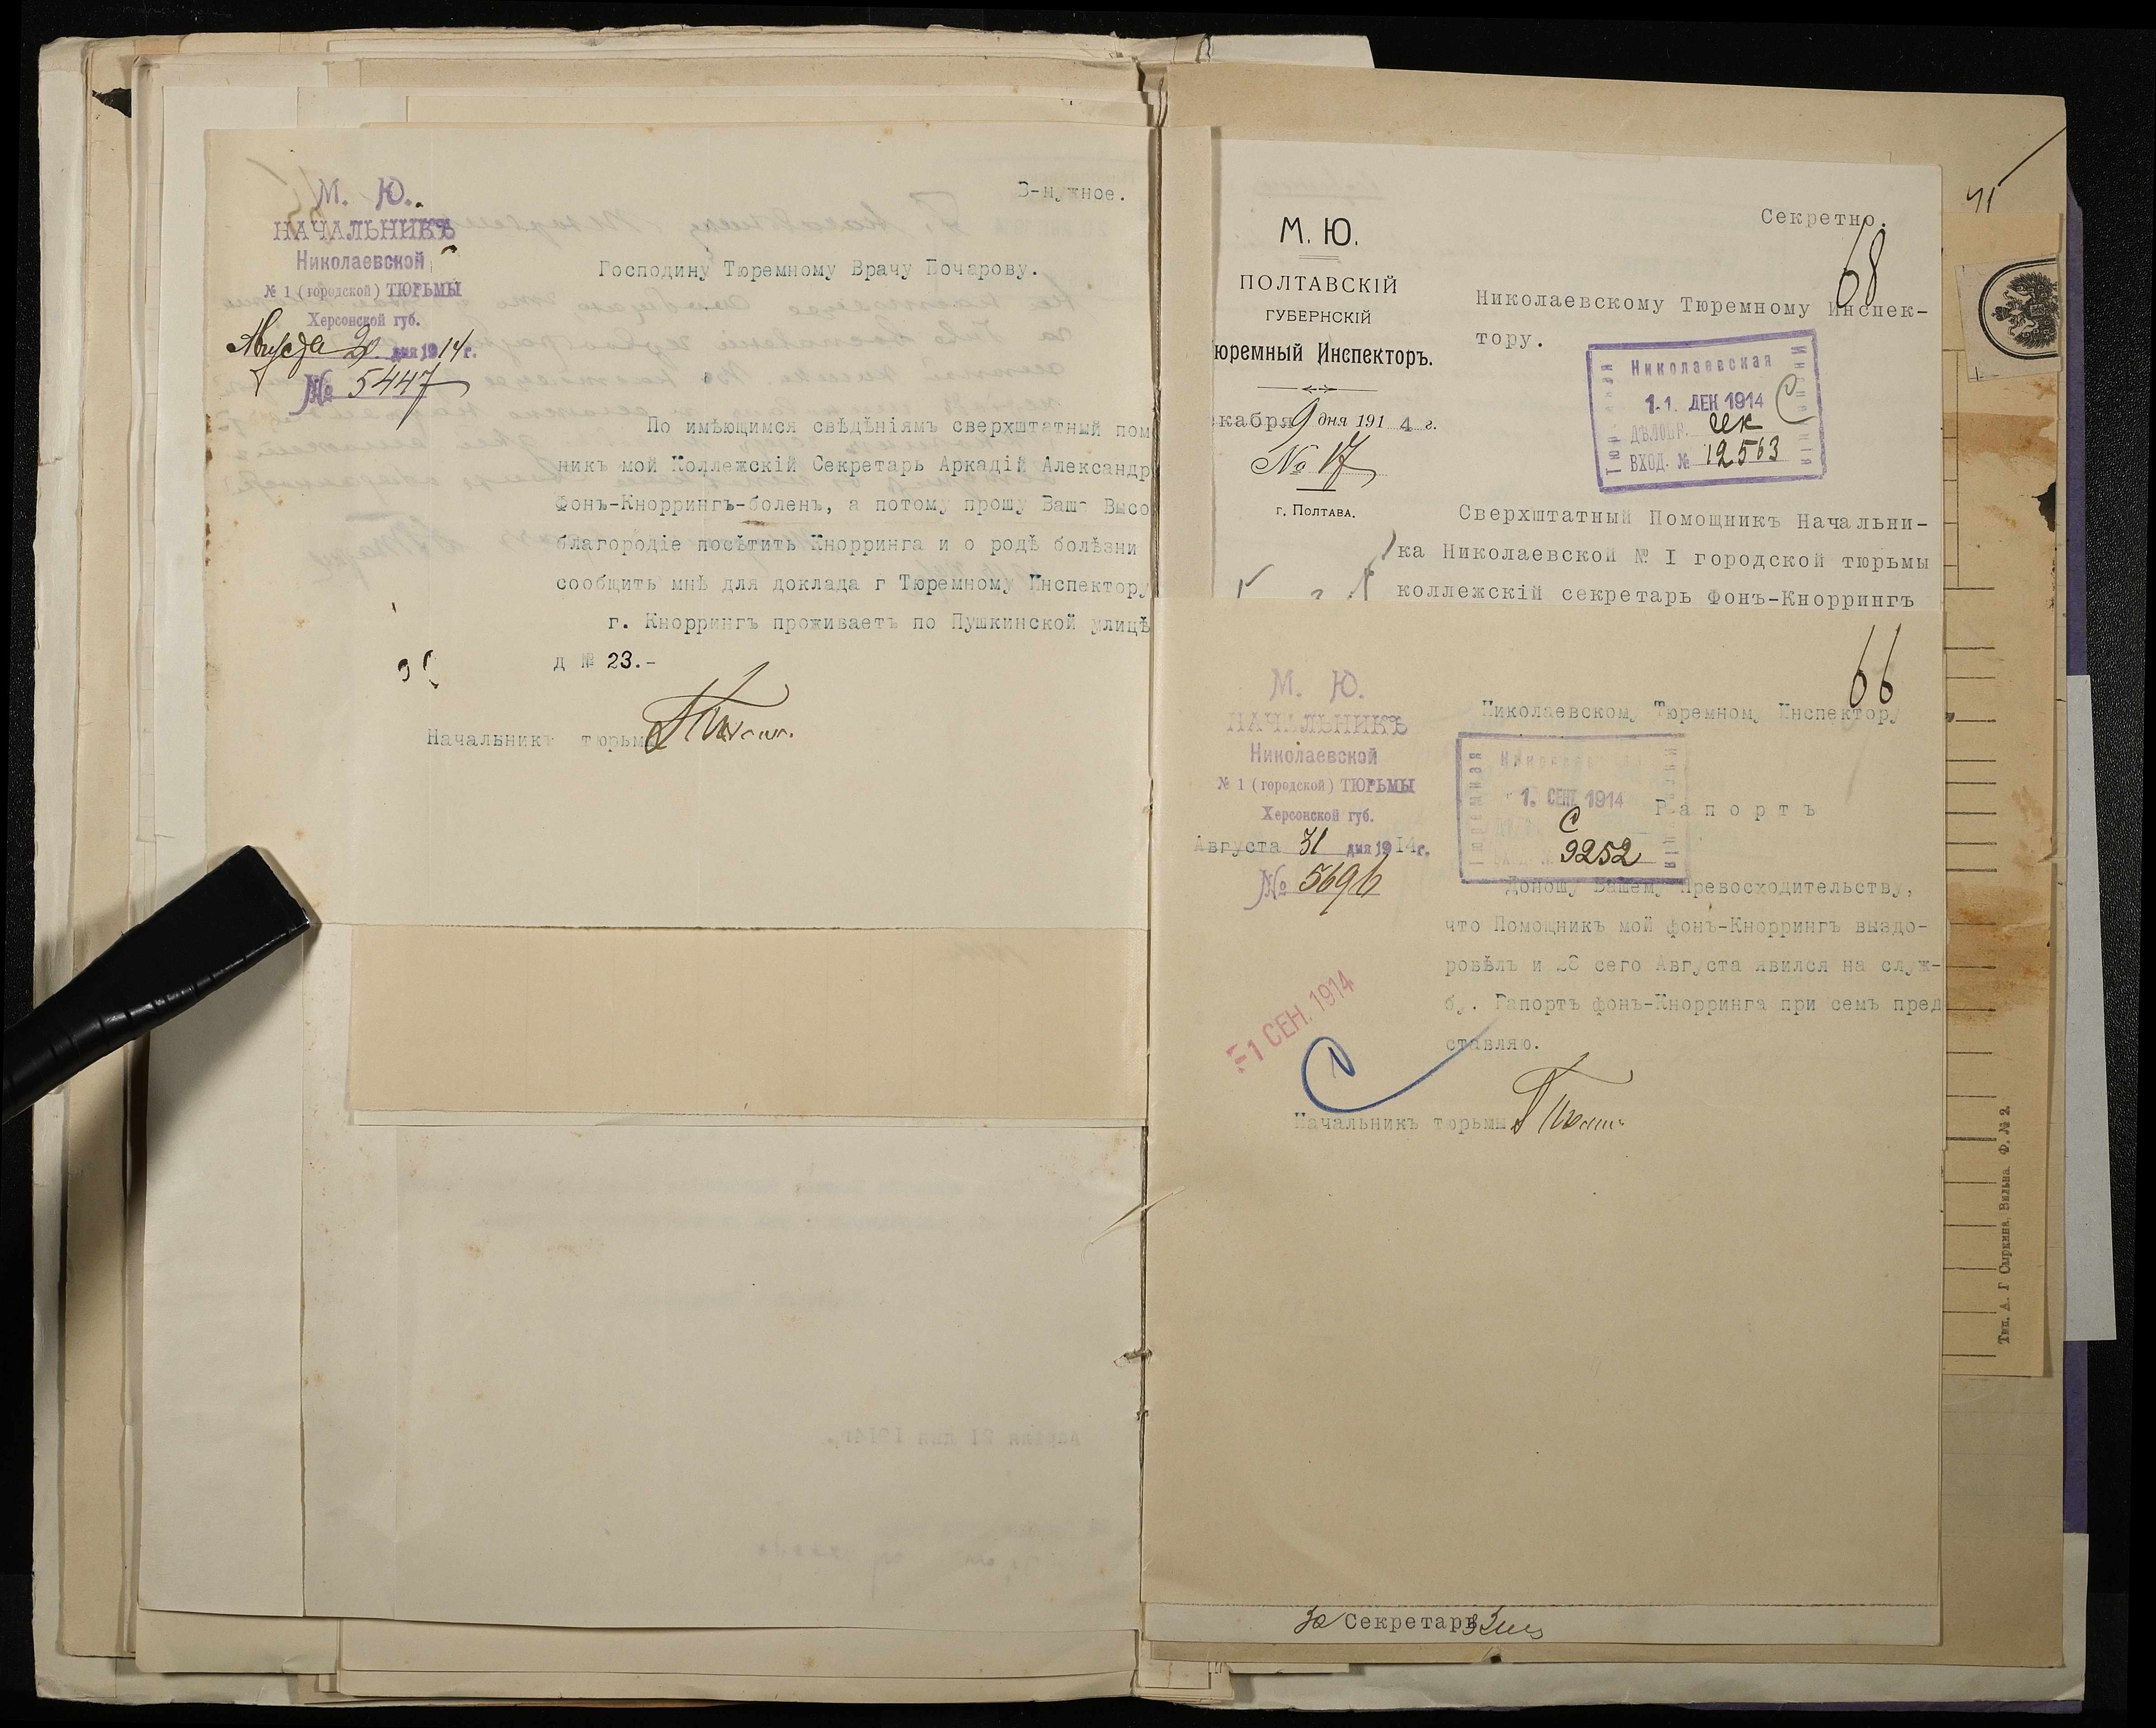 М. Ю.
НАЧАЛЬНИКЪ
Николаевской
№ 1 (городской) ТЮРЬМЫ
Херсонской губ.
Августа 20 дня 1914 г.
№ 5447
В-нужное.
Господину Тюремному Врачу Бочарову.
По имѣющимся свѣдѣніямъ сверхштатный пом
никъ мой Коллежскій Секретарь Аркадій Александр
Фонъ-Кноррингъ-боленъ, а потому прошу Ваше Высо
благородіе посѣтить Кнорринга и о родѣ болѣзни
сообщить мнѣ для доклада г Тюремному Инспектору
г. Кноррингъ проживаетъ по Пушкинской улицѣ
д № 23.-
Начальникъ тюрьмы
Секретно.
68
М. Ю.
ПОЛТАВСКІЙ
ГУБЕРНСКІЙ
юремный Инспекторъ.
екабря 9 дня 1914 г.
№ 17
г. Полтава.
Николаевскому Тюремному Инспек-
тору.
Николаевская
Тюремная
Инспекція
11. ДЕК 1914
ДѢЛОПР.
ВХОД. № 12563
Сверхштатный Помощникъ Начальни-
ка Николаевской № I городской тюрьмы
коллежскій секретарь Фонъ-Кноррингъ
66
М. Ю.
НАЧАЛЬНИКЪ
Николаевской
№ 1 (городской) ТЮРЬМЫ
Херсонской губ.
Августа 31 дня 1914 г.
№ 5696
Николаевскому Тюремному Инспектору
Тюремная
1. СЕН 1914
С
9252
Рапортъ
Доношу Вашему Превосходительству,
что Помощникъ мой фонъ-Кноррингъ выздо-
ровѣлъ и 28 сего Августа явился на служ-
бу. Рапортъ фонъ-Кнорринга при семъ пред
ставляю.
1 СЕН. 1914
Начальникъ тюрьмы
За Секретарь
Тип. А. Г Сыркина, Вильна. Ф. № 2.